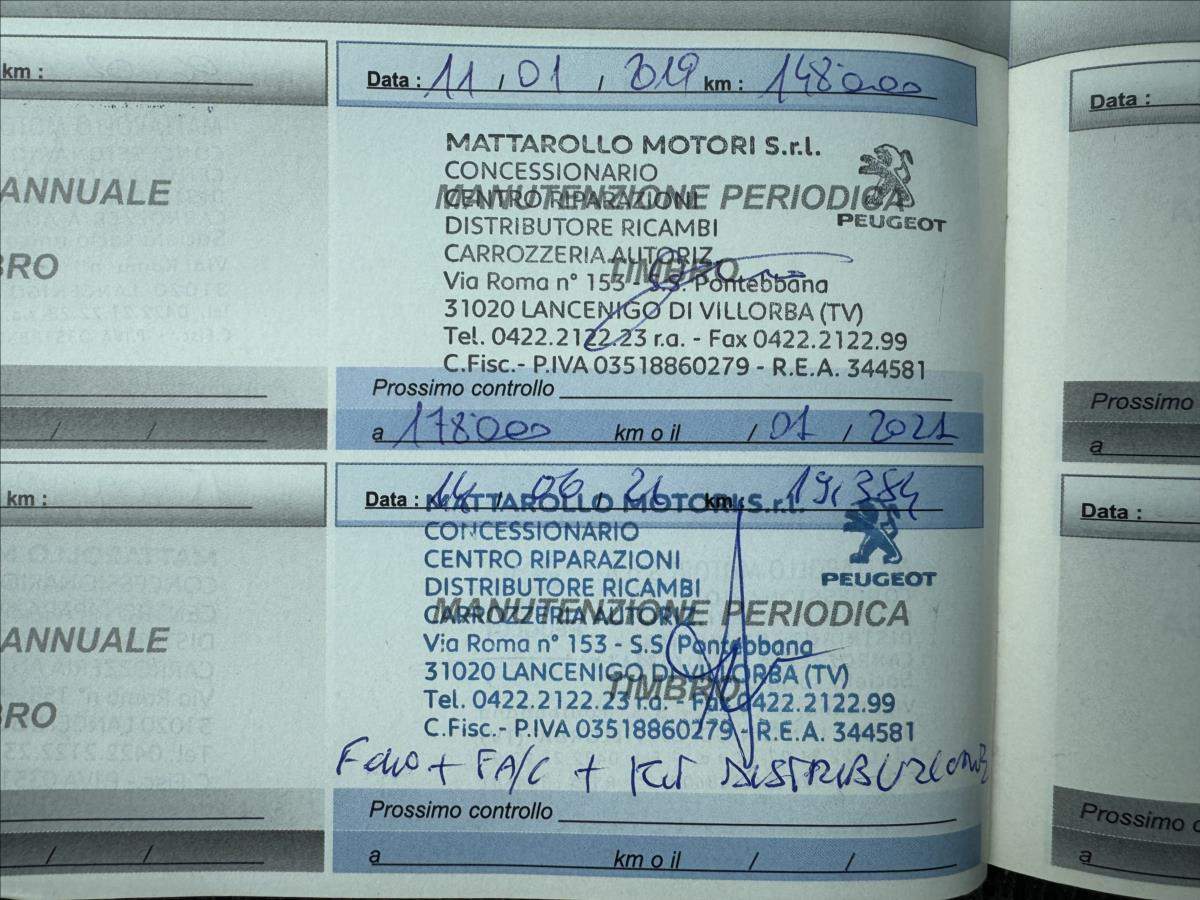 km :
ANNUALE
BRO
Data : 11 / 01 / 2019 km : 148000
MATTAROLLO MOTORI S.r.l.
CONCESSIONARIO
MANUTENZIONE PERIODICA
CENTRO RIPARAZIONI
DISTRIBUTORE RICAMBI
PEUGEOT
CARROZZERIA AUTORIZ.
TIMBRO
Via Roma n° 153 - S.S. Pontebbana
31020 LANCENIGO DI VILLORBA (TV)
Tel. 0422.2122.23 r.a. - Fax 0422.2122.99
C.Fisc.- P.IVA 03518860279 - R.E.A. 344581
Prossimo controllo
a 178000 km o il / 01 / 2021
Data :
Prossimo
a
km :
ANNUALE
BRO
Data : 14 / 06 / 21 km : 19,384
MATTAROLLO MOTORI S.r.l.
CONCESSIONARIO
CENTRO RIPARAZIONI
PEUGEOT
DISTRIBUTORE RICAMBI
MANUTENZIONE PERIODICA
CARROZZERIA AUTORIZ
Via Roma n° 153 - S.S Pontebbana
31020 LANCENIGO DI VILLORBA (TV)
TIMBRO
Tel. 0422.2122.23 r.a. - Fax 0422.2122.99
C.Fisc.- P.IVA 03518860279 - R.E.A. 344581
+ FA/C + KIT DISTRIBUZIONE
Prossimo controllo
a km o il / /
Data :
Prossimo c
a